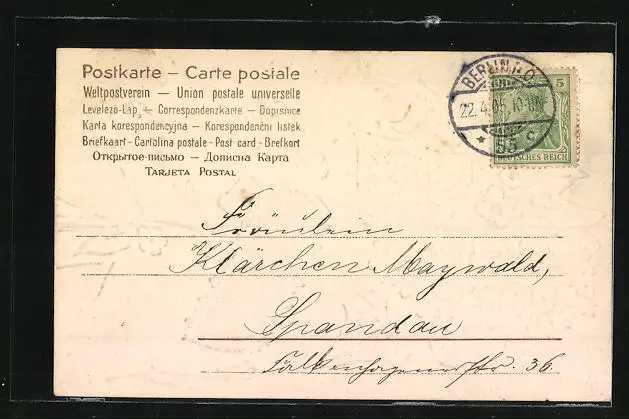 Postkarte – Carte postale
Weltpostverein – Union postale universelle
Levelező-Lap – Correspondenzkarte – Dopisnice
Karta korespondencyjna – Korespondenční listek
Briefkaart - Cartolina postale - Post card - Brefkort
Открытое-письмо – Дописна Карта
Tarjeta Postal
BERLIN N.O.
22.4.05. 10-11V.
* 55 c
5
DEUTSCHES REICH
Fräulein
Klärchen Maywald,
Spandau
Falkenhagenerstr. 36.